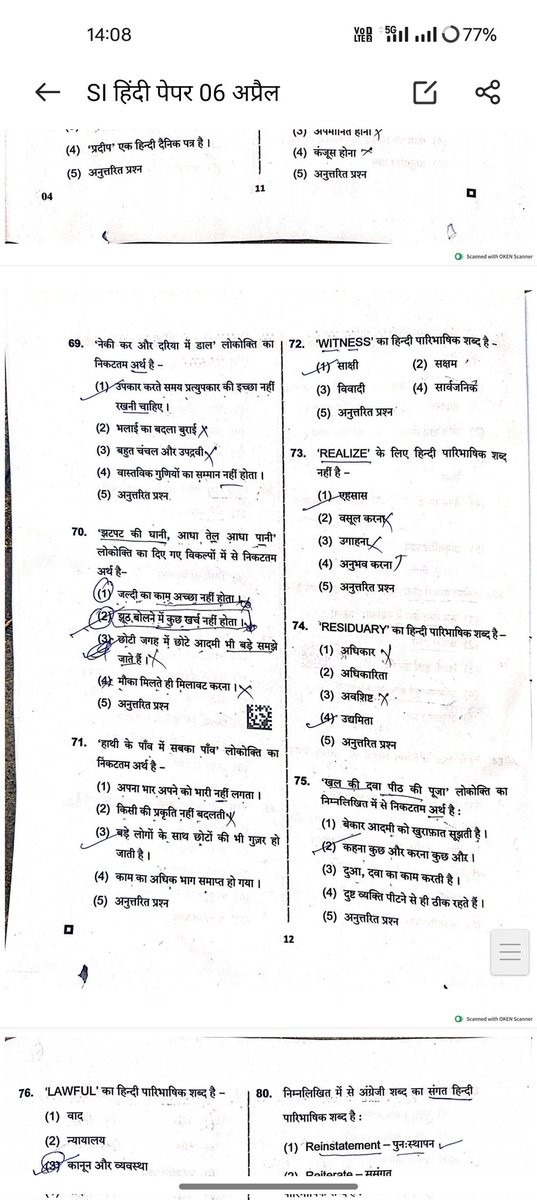 14:08
VoD LTE2 5G 77%
SI हिंदी पेपर 06 अप्रैल
(4) 'प्रदीप' एक हिन्दी दैनिक पत्र है।
(5) अनुत्तरित प्रश्न
04
(3) अपमानित होना
(4) कंजूस होना
(5) अनुत्तरित प्रश्न
11
Scanned with OKEN Scanner
69. 'नेकी कर और दरिया में डाल' लोकोक्ति का
निकटतम अर्थ है –
(1) उपकार करते समय प्रत्युपकार की इच्छा नहीं
रखनी चाहिए।
(2) भलाई का बदला बुराई
(3) बहुत चंचल और उपद्रवी
(4) वास्तविक गुणियों का सम्मान नहीं होता।
(5) अनुत्तरित प्रश्न.
70. 'झटपट की घानी, आधा तेल आधा पानी'
लोकोक्ति का दिए गए विकल्पों में से निकटतम
अर्थ है–
(1) जल्दी का काम अच्छा नहीं होता।
(2) झूठ बोलने में कुछ खर्च नहीं होता।
(3) छोटी जगह में छोटे आदमी भी बड़े समझे
जाते हैं।
(4) मौका मिलते ही मिलावट करना।
(5) अनुत्तरित प्रश्न
71. 'हाथी के पाँव में सबका पाँव' लोकोक्ति का
निकटतम अर्थ है –
(1) अपना भार अपने को भारी नहीं लगता।
(2) किसी की प्रकृति नहीं बदलती
(3) बड़े लोगों के साथ छोटों की भी गुज़र हो
जाती है।
(4) काम का अधिक भाग समाप्त हो गया।
(5) अनुत्तरित प्रश्न
72. 'WITNESS' का हिन्दी पारिभाषिक शब्द है –
(1) साक्षी (2) सक्षम
(3) विवादी (4) सार्वजनिक
(5) अनुत्तरित प्रश्न
73. 'REALIZE' के लिए हिन्दी पारिभाषिक शब्द
नहीं है –
(1) एहसास
(2) वसूल करना
(3) उगाहना
(4) अनुभव करना
(5) अनुत्तरित प्रश्न
74. 'RESIDUARY' का हिन्दी पारिभाषिक शब्द है –
(1) अधिकार
(2) अधिकारिता
(3) अवशिष्ट
(4) उद्यमिता
(5) अनुत्तरित प्रश्न
75. 'खल की दवा पीठ की पूजा' लोकोक्ति का
निम्नलिखित में से निकटतम अर्थ है :
(1) बेकार आदमी को खुराफ़ात सूझती है।
(2) कहना कुछ और करना कुछ और।
(3) दुआ, दवा का काम करती है।
(4) दुष्ट व्यक्ति पीटने से ही ठीक रहते हैं।
(5) अनुत्तरित प्रश्न
12
Scanned with OKEN Scanner
76. 'LAWFUL' का हिन्दी पारिभाषिक शब्द है –
(1) वाद
(2) न्यायालय
(3) कानून और व्यवस्था
80. निम्नलिखित में से अंग्रेजी शब्द का संगत हिन्दी
पारिभाषिक शब्द है :
(1) Reinstatement – पुनःस्थापन
(2) Reiterate –